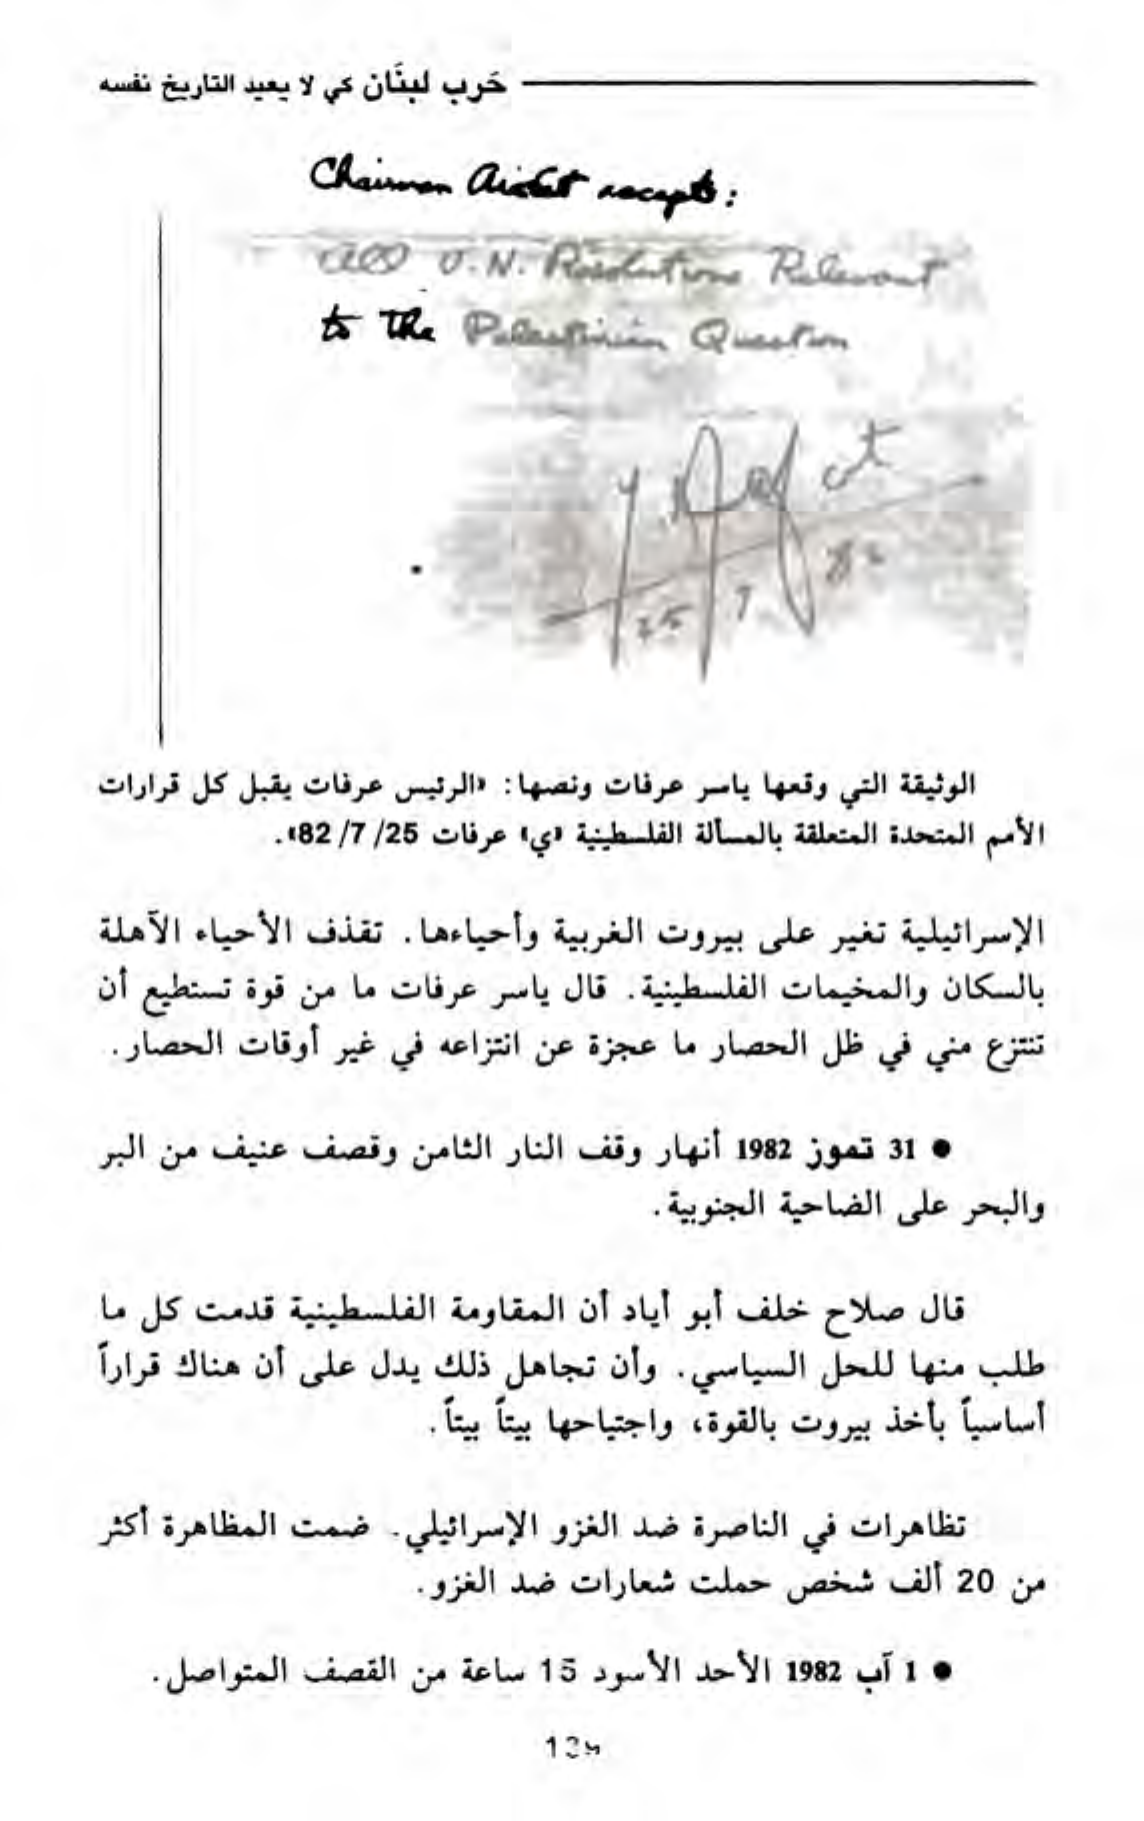 حَرب لبنَان كي لا يعيد التاريخ نفسه
Chairman Arafat accepts:
all U.N. Resolutions Relevant
to the Palestinian Question
Y. Arafat
25 7 82
الوثيقة التي وقعها ياسر عرفات ونصها: «الرئيس عرفات يقبل كل قرارات
الأمم المتحدة المتعلقة بالمسألة الفلسطينية «ي» عرفات 25/ 7/ 82».
الإسرائيلية تغير على بيروت الغربية وأحياءها. تقذف الأحياء الآهلة
بالسكان والمخيمات الفلسطينية. قال ياسر عرفات ما من قوة تستطيع أن
تنتزع مني في ظل الحصار ما عجزة عن انتزاعه في غير أوقات الحصار.
● 31 تموز 1982 أنهار وقف النار الثامن وقصف عنيف من البر
والبحر على الضاحية الجنوبية.
قال صلاح خلف أبو أياد أن المقاومة الفلسطينية قدمت كل ما
طلب منها للحل السياسي. وأن تجاهل ذلك يدل على أن هناك قراراً
أساسياً بأخذ بيروت بالقوة، واجتياحها بيتاً بيتاً.
تظاهرات في الناصرة ضد الغزو الإسرائيلي. ضمت المظاهرة أكثر
من 20 ألف شخص حملت شعارات ضد الغزو.
● 1 آب 1982 الأحد الأسود 15 ساعة من القصف المتواصل.